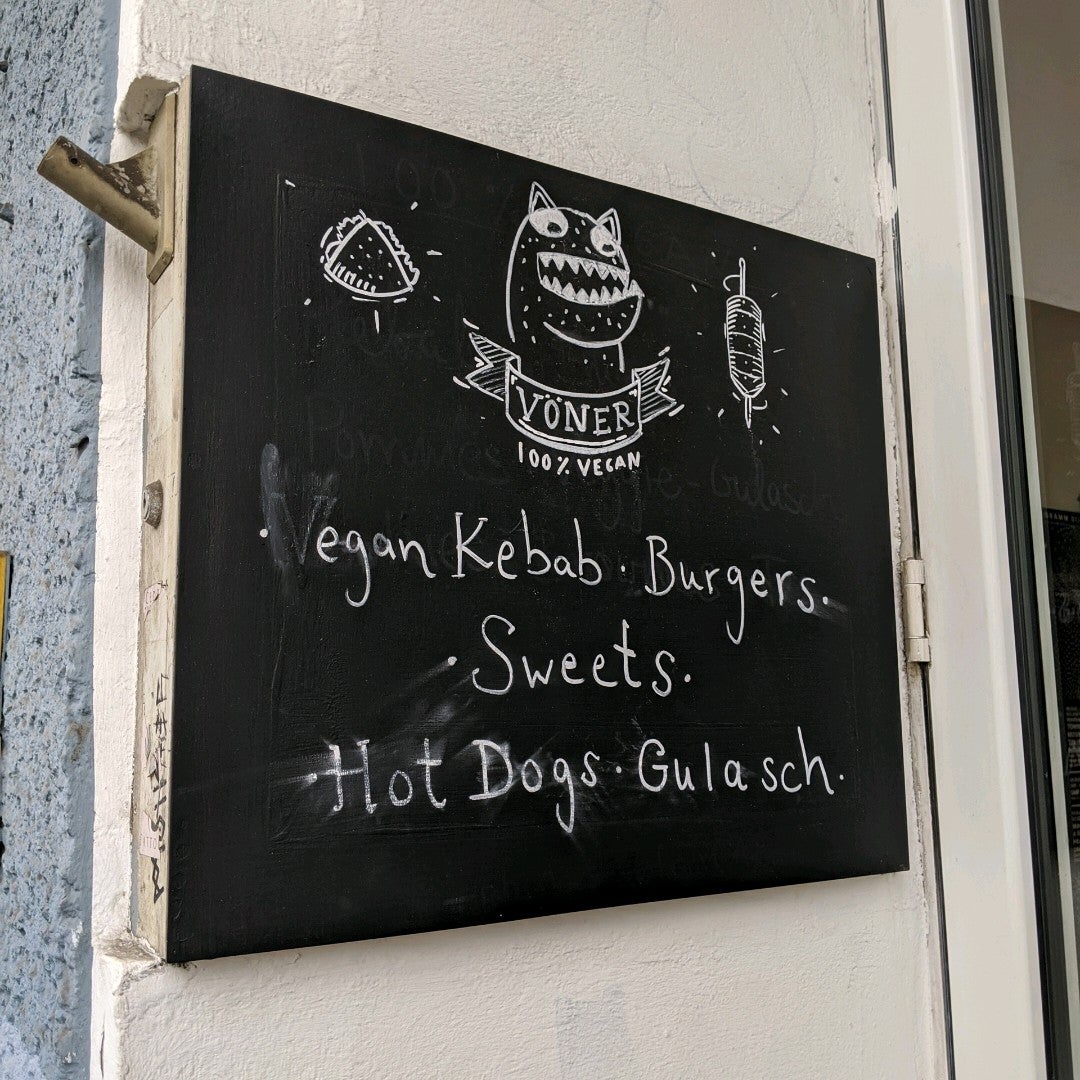 VÖNER
100% VEGAN
· Vegan Kebab · Burgers ·
· Sweets ·
· Hot Dogs · Gulasch ·